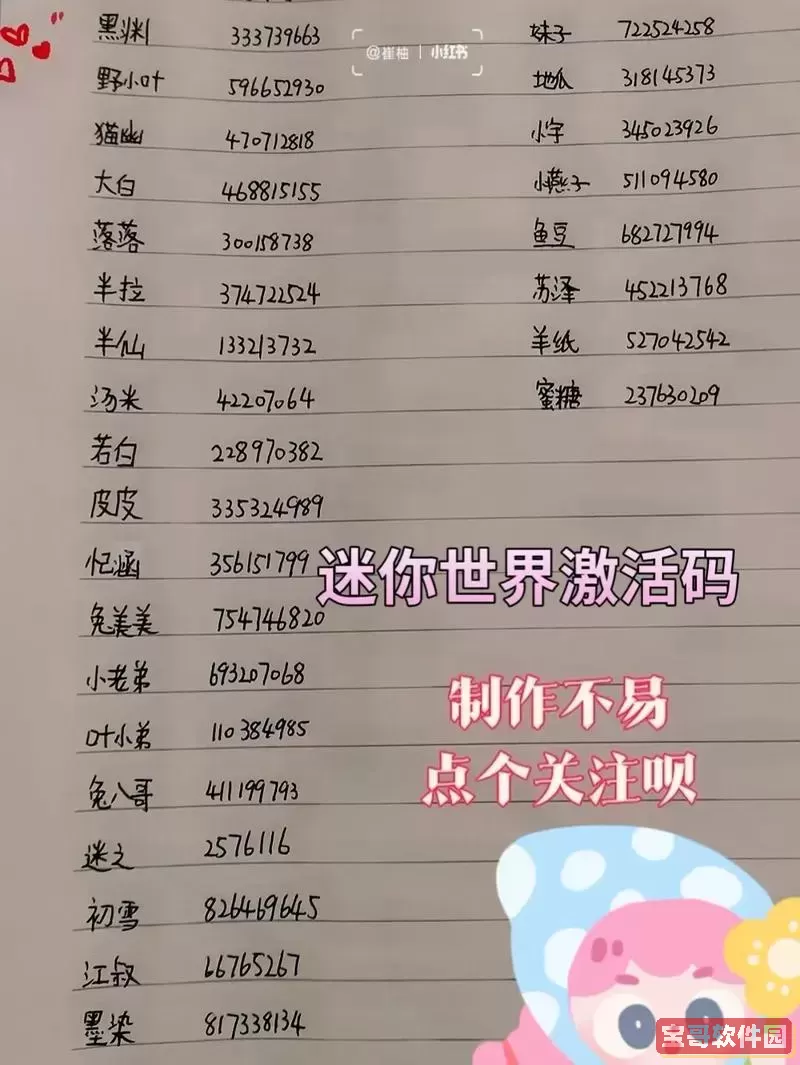 黑渊 333739663
@崔柚 | 小红书
妹子 722524258
野小叶 596652930
地瓜 318145373
猫幽 470712818
小宇 345023926
大白 468815155
小燕子 511094580
落落 300158738
鱼豆 682727994
半拉 374722524
苏泽 452213768
半仙 133213732
羊纸 527042542
汤米 42207064
蜜糖 237630209
若白 228970382
皮皮 335324989
忆涵 356151799
迷你世界激活码
兔美美 754746820
小老弟 693207068
制作不易
叶小弟 110384985
点个关注呗
兔八哥 411199793
迷之 2576116
初雪 826469645
江叔 66765267
墨染 817338134
宝哥软件园